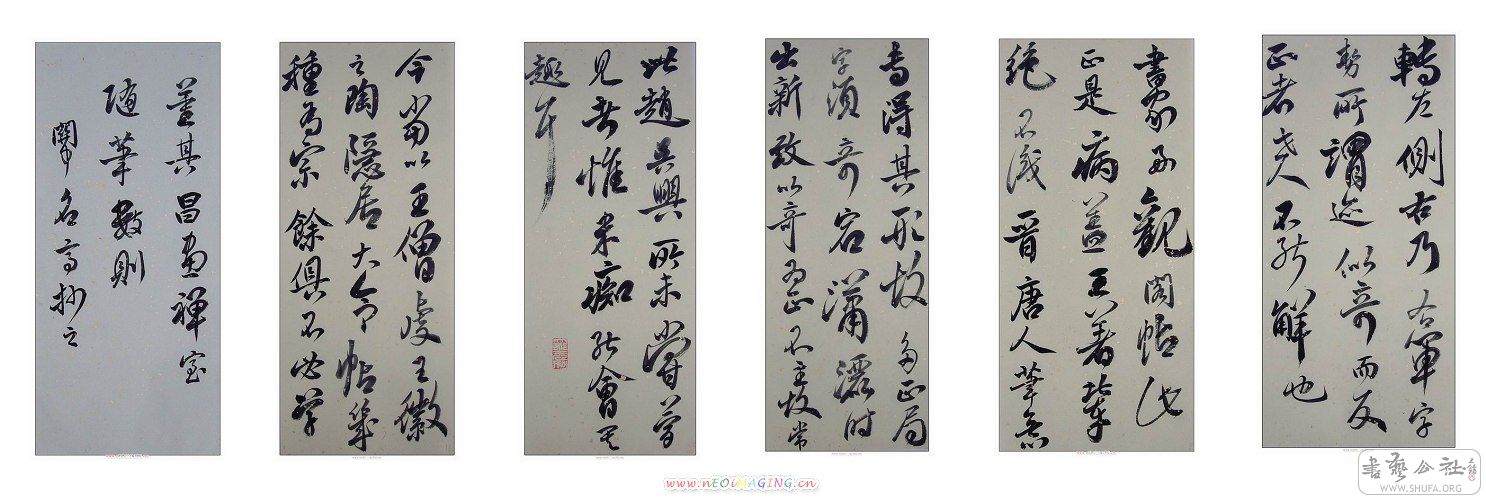 轉左側右乃右軍字
勢所謂迹似奇而反
正者世人不能解也
書家好觀閣帖此
正是病蓋王著輩
絕不識晉唐人筆意
專得其形故多正局
字須奇宕瀟灑時
出新致以奇為正不主故常
此趙吳興所未嘗夢
見者惟米痴能會其
趣耳
今當以王僧虔王徽
之陶隱居大令帖幾
種為宗餘俱不必學
董其昌畫禪室
隨筆數則
名高抄之
www.nEOiMAGING.cn
書藝公社
WWW.SHUFA.ORG